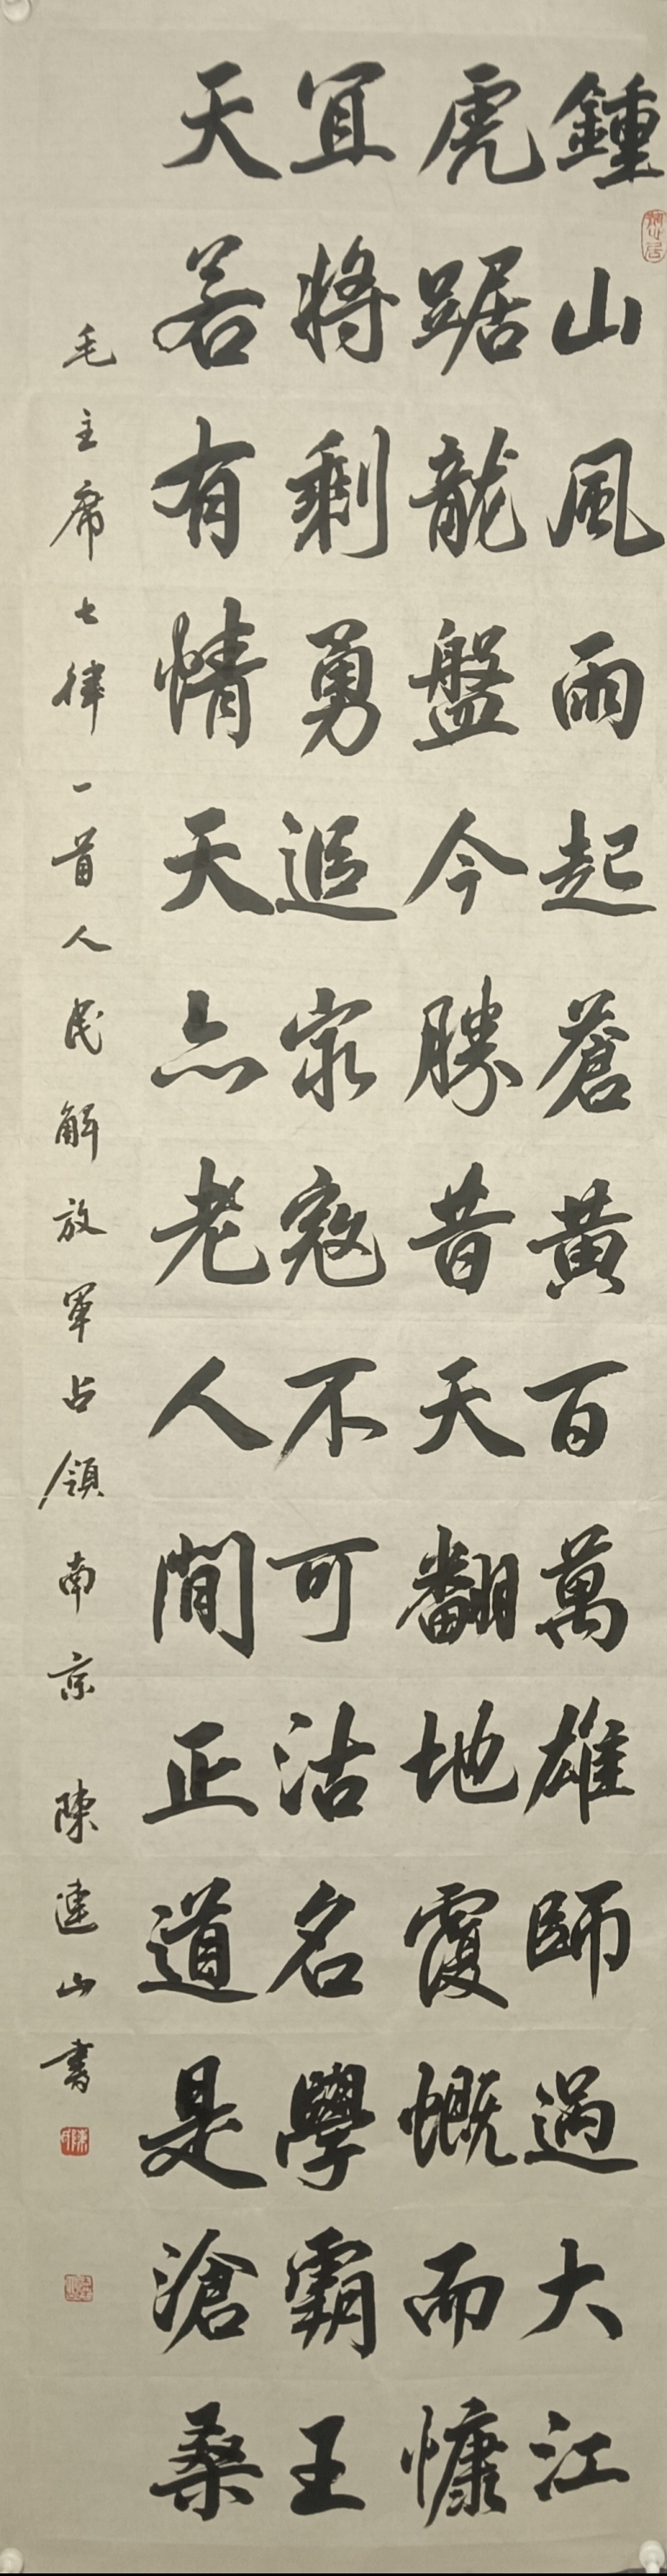 鍾山風雨起蒼黃百萬雄師過大江
虎踞龍盤今勝昔天翻地覆慨而慷
宜將剩勇追窮寇不可沽名學霸王
天若有情天亦老人間正道是滄桑
毛主席七律一首人民解放軍占領南京 陳連山書